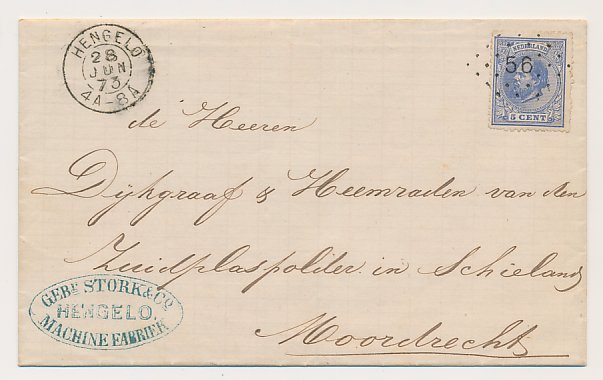 HENGELO
28
JUN
73
4A-8A
NEDERLAND
56
5 CENT
de Heeren
Dijkgraaf & Heemraden van den
Zuidplaspolder in Schieland
Moordrecht
GEBR STORK & Co
HENGELO.
MACHINE FABRIEK